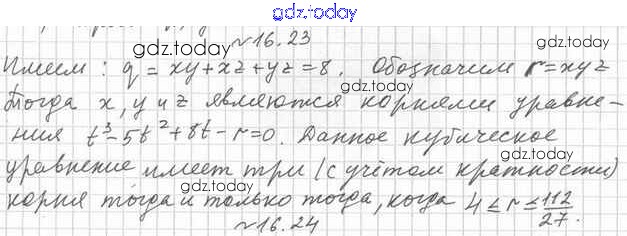 gdz.today
gdz.today
№16.23
Имеем: q = xy+xz+yz=8. Обозначим r=xyz
gdz.today
Тогда x, y и z являются корнями уравне-
ния t³-5t²+8t-r=0. Данное кубическое
gdz.today
уравнение имеет три (с учётом кратности)
gdz.today
корня тогда и только тогда, когда 4≤r≤112/27.
gdz.today
№16.24